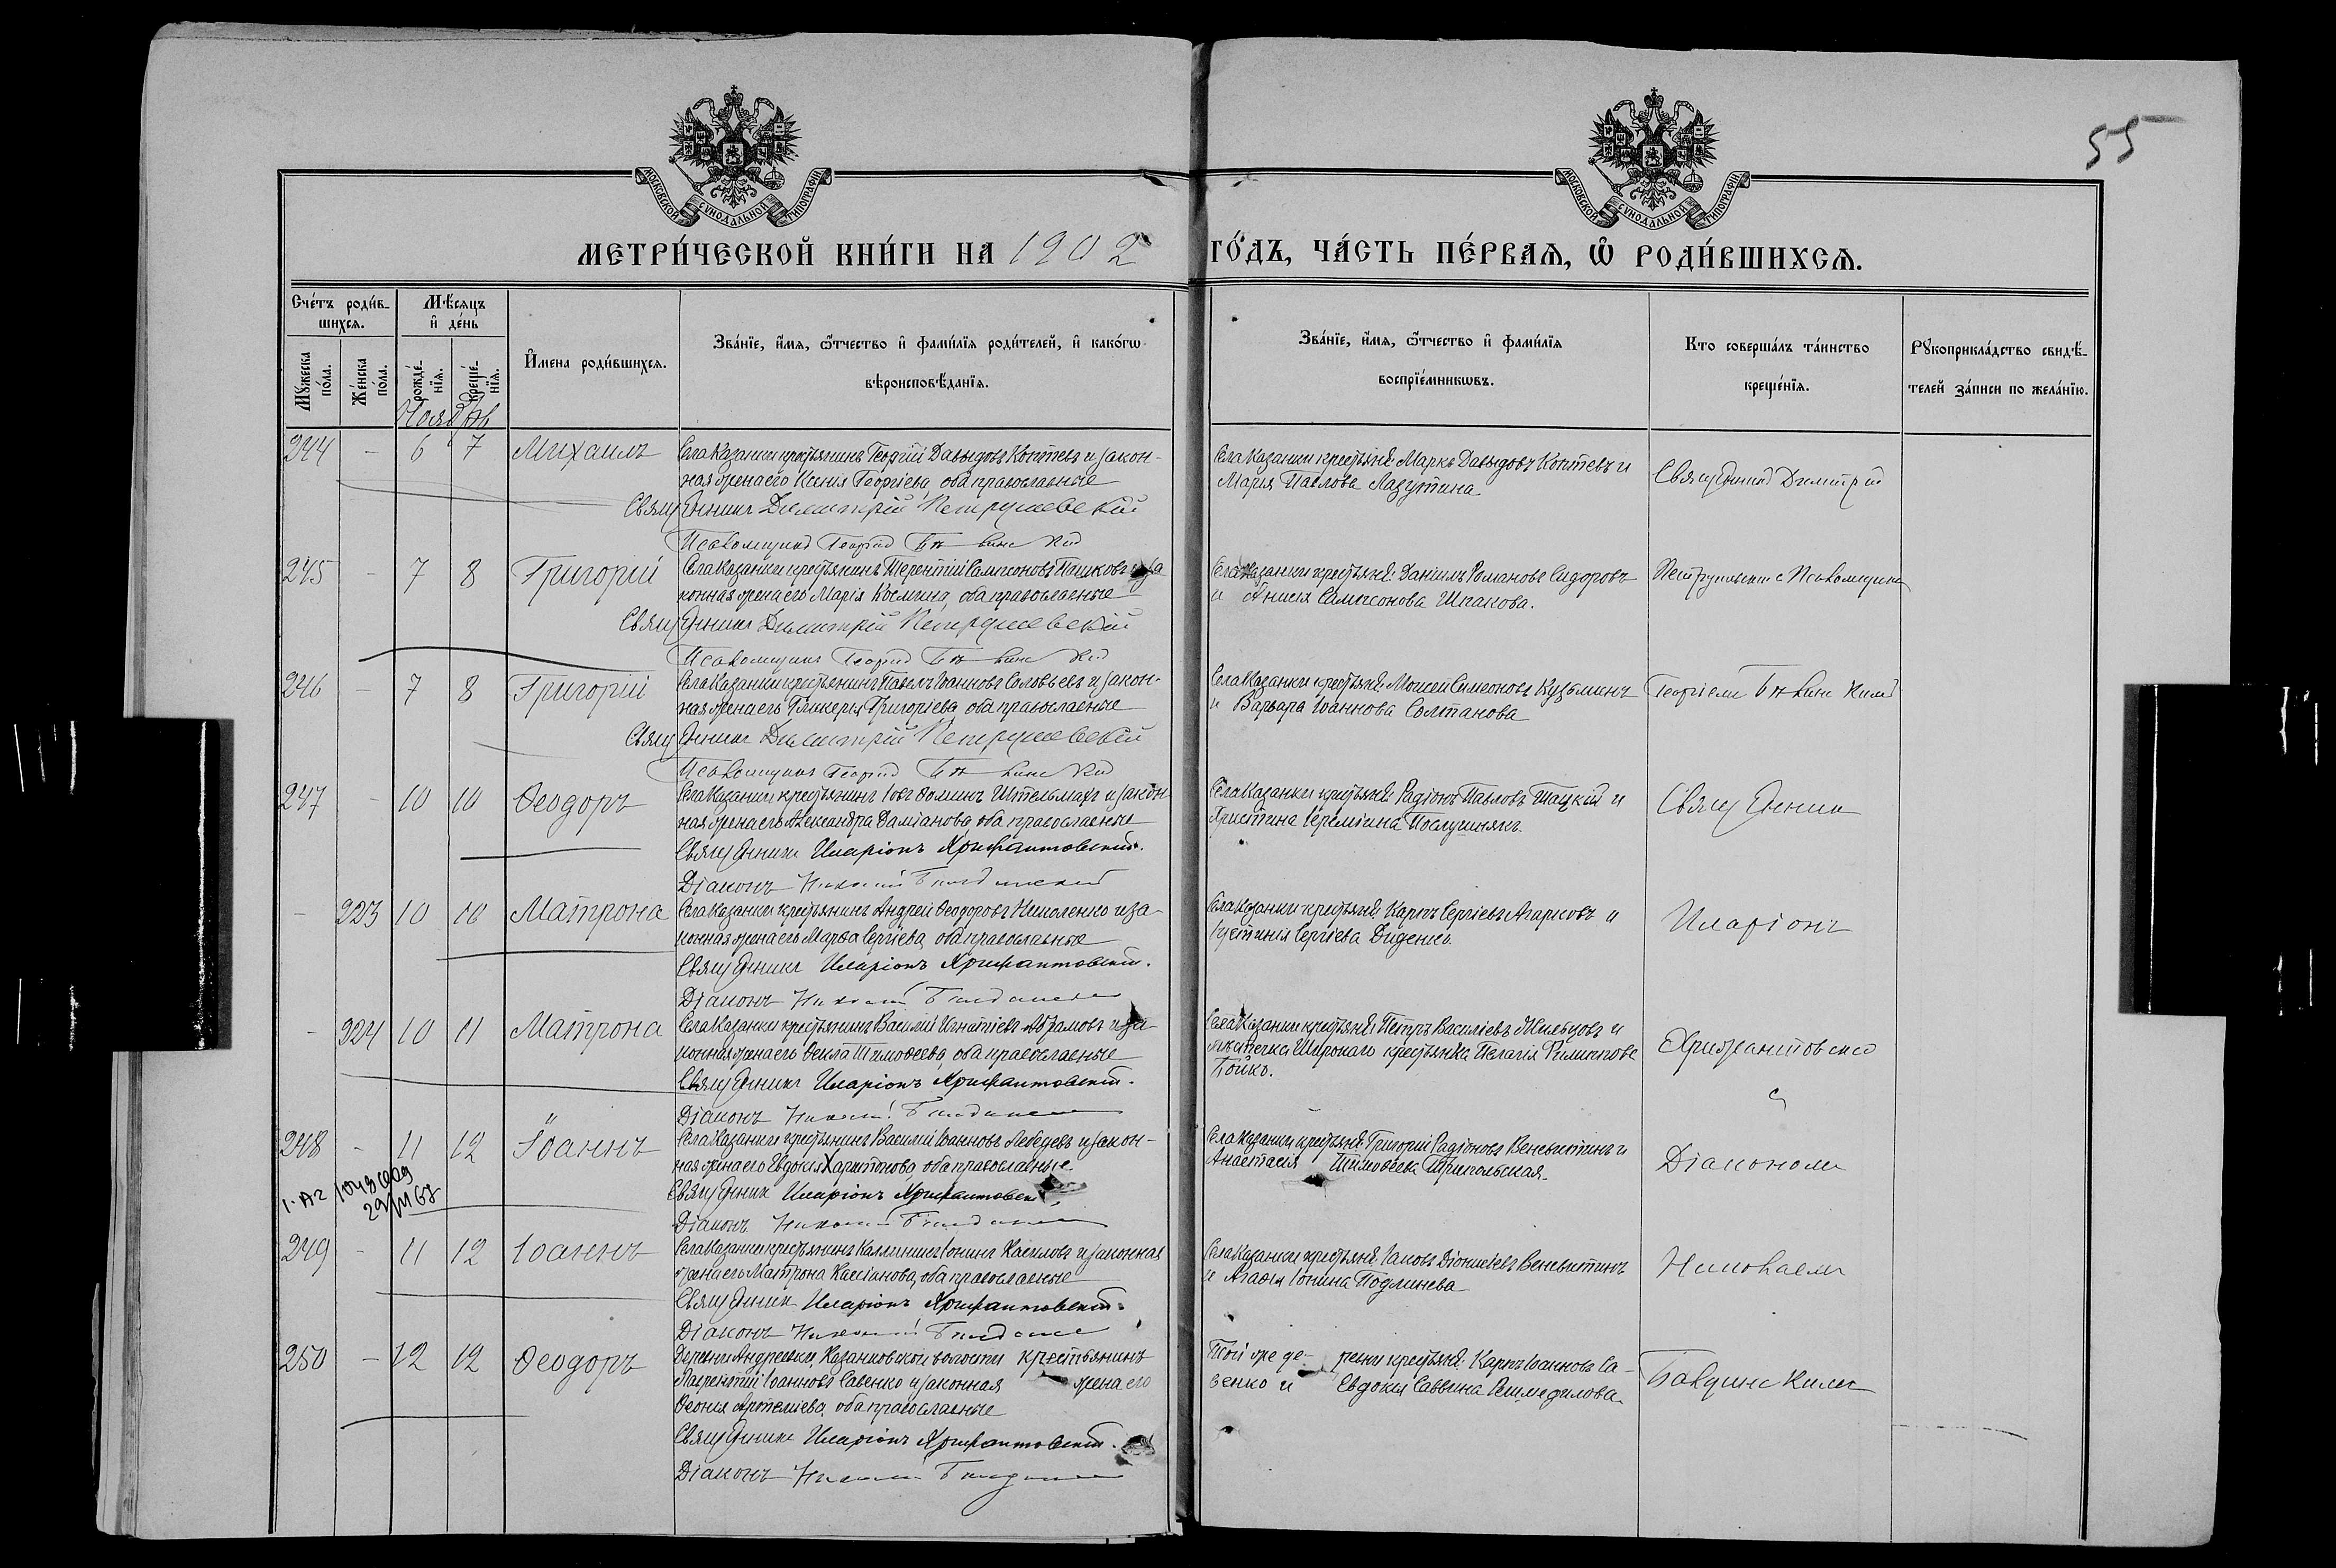 55
МОСКОВСКОЙ СѴНОДАЛЬНОЙ ТИПОГРАФІИ
МОСКОВСКОЙ СѴНОДАЛЬНОЙ ТИПОГРАФІИ
МЕТРИ́ЧЕСКОЙ КНИ́ГИ НА 1902 ГО́ДЪ, ЧА́СТЬ ПЕ́РВАѦ, Ѡ҆ РОДИ́ВШИХСѦ.
Сче́тъ роди́в-
шихсѧ.
Мꙋ́жеска по́ла.
Же́нска по́ла.
Мѣ́сѧцъ
и҆ де́нь
рожде́-
нїѧ.
креще́-
нїѧ.
Ноябрь
И҆мена роди́вшихсѧ.
Зва́нїе, и҆́мѧ, ѻ҆́тчество и҆ фами́лїѧ роди́телей, и҆ како́гѡ
вѣроисповѣ́данїѧ.
Зва́нїе, и҆́мѧ, ѻ҆́тчество и҆ фами́лїѧ
воспрїе́мникѡвъ.
Кто соверша́лъ та́инство
креще́нїѧ.
Рꙋкоприкла́дство свидѣ́-
телей за́писи по жела́нїю.
244 - 6 7 Михаилъ
Села Казанки крестьянинъ Георгій Давыдовъ Коптевъ и закон-
ная жена его Ксенія Георгіева, оба православные
Священникъ Димитрій Петрушевскій
Псаломщикъ Георгій
Села Казанки крестьяне: Маркъ Давыдовъ Коптевъ и
Марія Павлова Лазутина
Священник Димитрій
245 - 7 8 Григорій
Села Казанки крестьянинъ Терентій Сампсоновъ Пашковъ и за
конная жена его Марія Космина, оба православные
Священникъ Димитрій Петрушевскій
Псаломщикъ Георгій
Села Казанки крестьяне: Даніилъ Романовъ Сидоровъ
и Анисія Сампсонова Шпакова.
Петрушевскій с Псаломщиком
246 - 7 8 Григорій
Села Казанки крестьянинъ Павелъ Іоанновъ Соловьевъ и закон-
ная жена его Гликерія Григоріева, оба православные
Священникъ Димитрій Петрушевскій
Псаломщикъ Георгій
Села Казанки крестьяне: Моисей Симеоновъ Кузьминъ
и Варвара Іоаннова Солтанова
Георгіем
247 - 10 10 Ѳеодоръ
Села Казанки крестьянинъ Іовъ Ѳоминъ Штельмахъ и закон
ная жена его Александра Даміанова, оба православные
Священникъ Иларіонъ Хрисанфовскій.
Діаконъ Николай
Села Казанки крестьяне: Радіонъ Павловъ Тацкій и
Христина Іереміина Послушнякъ.
Священник
- 223 10 10 Матрона
Села Казанки крестьянинъ Андрей Ѳеодоровъ Николенко и за-
конная жена его Марѳа Сергіева, оба православные
Священникъ Иларіонъ
Діаконъ Николай
Села Казанки крестьяне: Карпъ Сергіевъ Агарковъ и
Іустинія Сергіева Диденко.
Иларіонъ
- 224 10 11 Матрона
Села Казанки крестьянинъ Василій Игнатіевъ Абрамовъ и за-
конная жена его Ѳекла Тимоѳеева, оба православные
Священникъ Иларіонъ
Діаконъ Николай
Села Казанки крестьяне: Петръ Василіевъ Жильцовъ и
мѣстечка Широкаго крестьянка Пелагія Филиппова
Бойко.
с
248 - 11 12 Іоаннъ
Села Казанки крестьянинъ Василій Іоанновъ Лебедевъ и закон-
ная жена его Евдокія Харитонова, оба православные.
Священник Иларіонъ
Діаконъ Николай
Села Казанки крестьяне: Григорій Радіоновъ Веневитинъ и
Анастасія Тимоѳеева Трипольская.
Діакономъ
249 - 11 12 Іоаннъ
Села Казанки крестьянинъ Каллиникъ Іонинъ Касиловъ и законная
жена его Матрона Кассіанова, оба православные
Священник Иларіонъ
Діаконъ Николай
Села Казанки крестьяне: Іаковъ Діонисіевъ Веневитинъ
и Агаѳія Іонина Подлинева
Николаемъ
250 - 12 12 Ѳеодоръ
Деревни Андреевки, Казанковской волости крестьянинъ
Лаврентій Іоанновъ Савенко и законная жена его
Ѳеонія Артеміева, оба православные
Священникъ Иларіонъ
Діаконъ Николай
Той же де- ревни крестьяне: Карпъ Іоанновъ Са-
венко и Евдокія Саввина